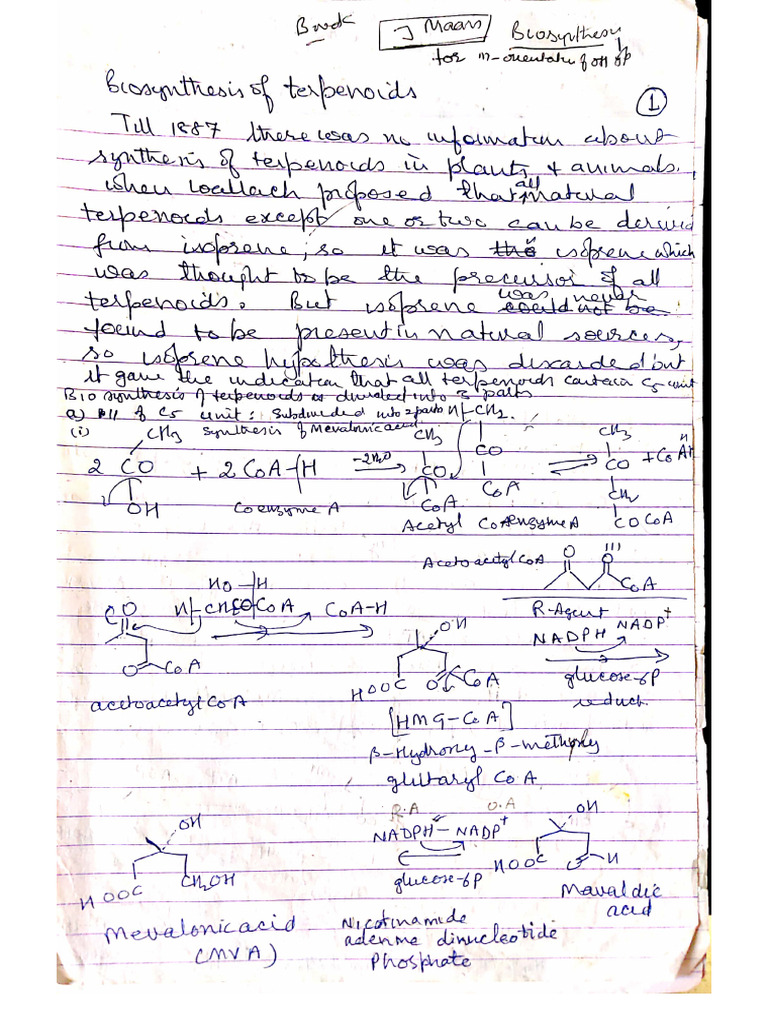 Book
J Maars Biosynthesis
for m-orientatn of OH gp
Biosynthesis of terpenoids
1
Till 1887 there was no informatn about
synthesis of terpenoids in plants & animals.
when wallach proposed that all natural
terpenoids except one or two can be derived
from isoprene, so it was the isoprene which
was thought to be the precursor of all
terpenoids. But isoprene was never could not be
found to be present in natural sources,
so isoprene hypothesis was discarded but
it gave the indication that all terpenoids contain C5 unit
Biosynthesis of terpenoids is divided into 3 parts
a) of C5 unit: Subdivided into 2 parts H-CH2.
(i) CH3 synthesis of Mevalonic acid CH3 CO CH3
2 CO + 2 CoA-H -2H2O CO CoA CO + CoAH
OH Coenzyme A CoA CH2
Acetyl Coenzyme A COCoA
Acetoacetyl CoA O O
CoA
HO-H
O H-CH2CO-CoA CoA-H R-Agent
OH NADPH NADP+
O CoA HOOC O CoA glucose-6P
acetoacetyl CoA reduct.
[HMG-CoA]
β-Hydroxy-β-methyl
glutaryl CoA
R.A O.A
OH NADPH - NADP+ OH
HOOC CH2OH glucose-6P HOOC O H
Mavaldic
acid
Mevalonic acid Nicotinamide
(MVA) adenine dinucleotide
Phosphate